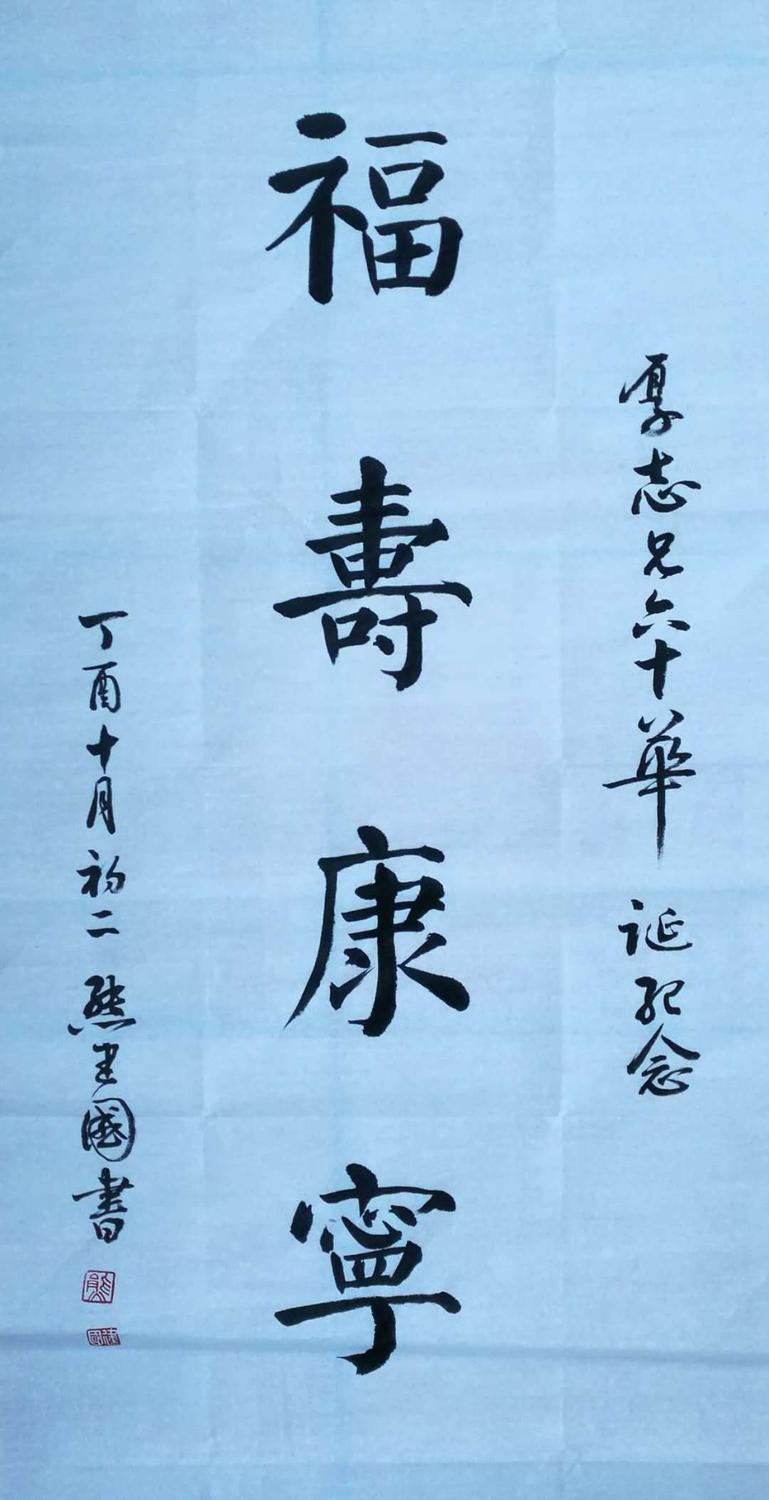 厚志兄六十華誕紀念
福壽康寧
丁酉十月初二熊建國書